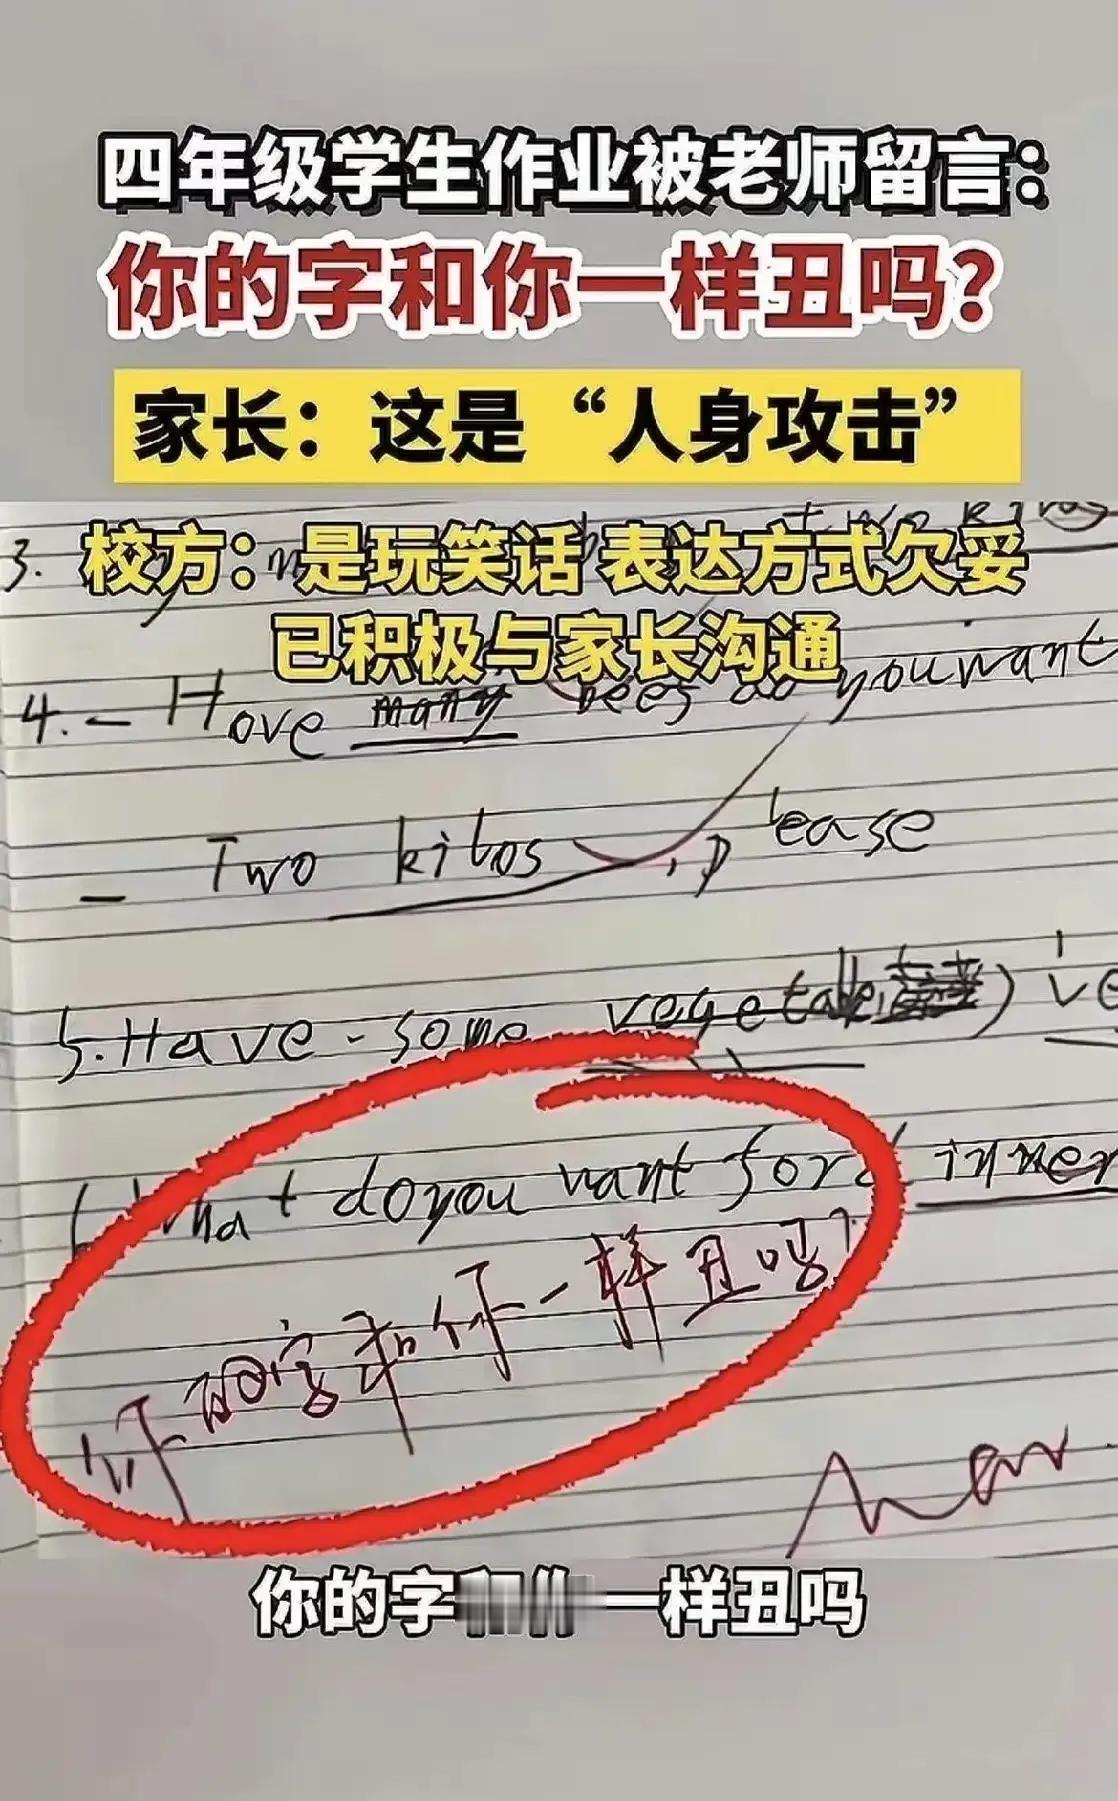 四年级学生作业被老师留言：
你的字和你一样丑吗？
家长：这是“人身攻击”
校方：是玩笑话 表达方式欠妥
已积极与家长沟通
3.
4. - Hove many do you want
- Two kilos , please
5. Have - some vegetable
What do you want for dinner
你的字和你一样丑吗？
你的字和你一样丑吗